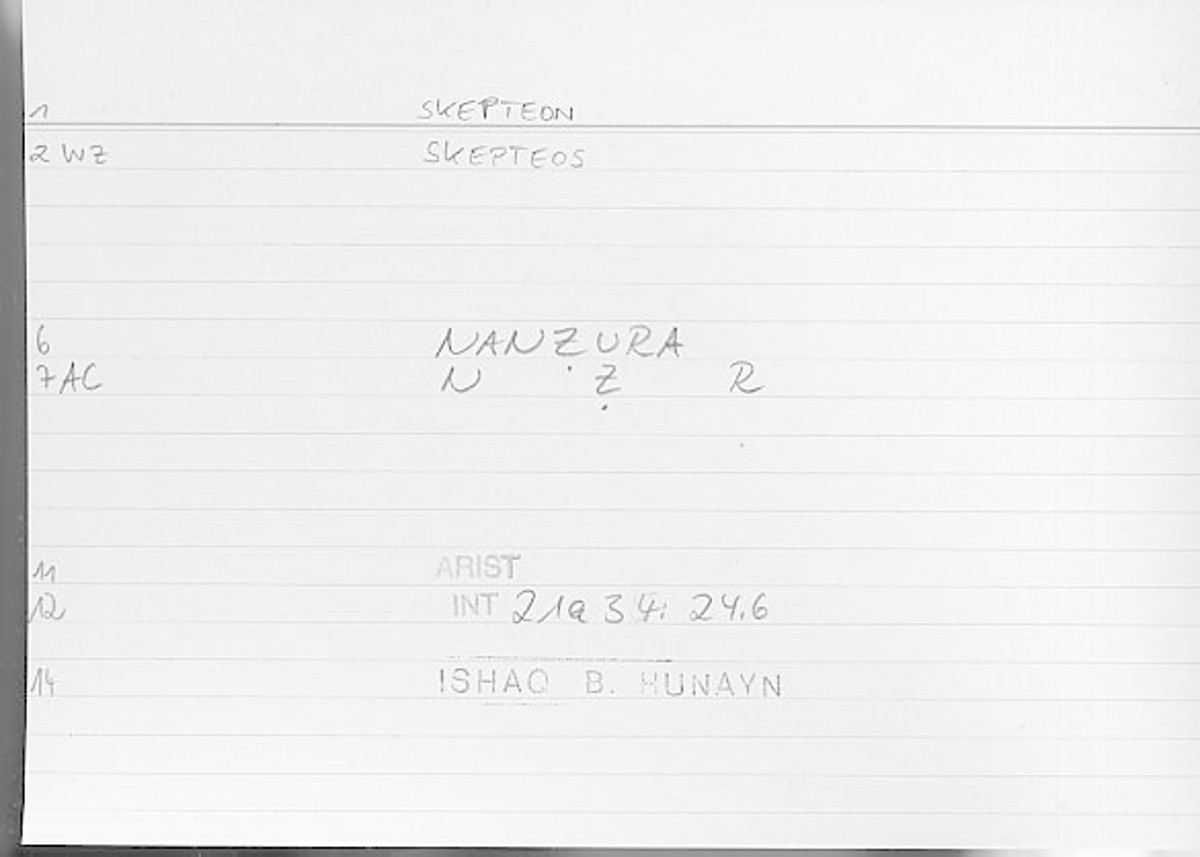 1 SKEPTEON
2 WZ SKEPTEOS
6 NANẒURA
7 AC N Ẓ R
11 ARIST
12 INT 21a 34; 24.6
14 ISHAQ B. HUNAYN